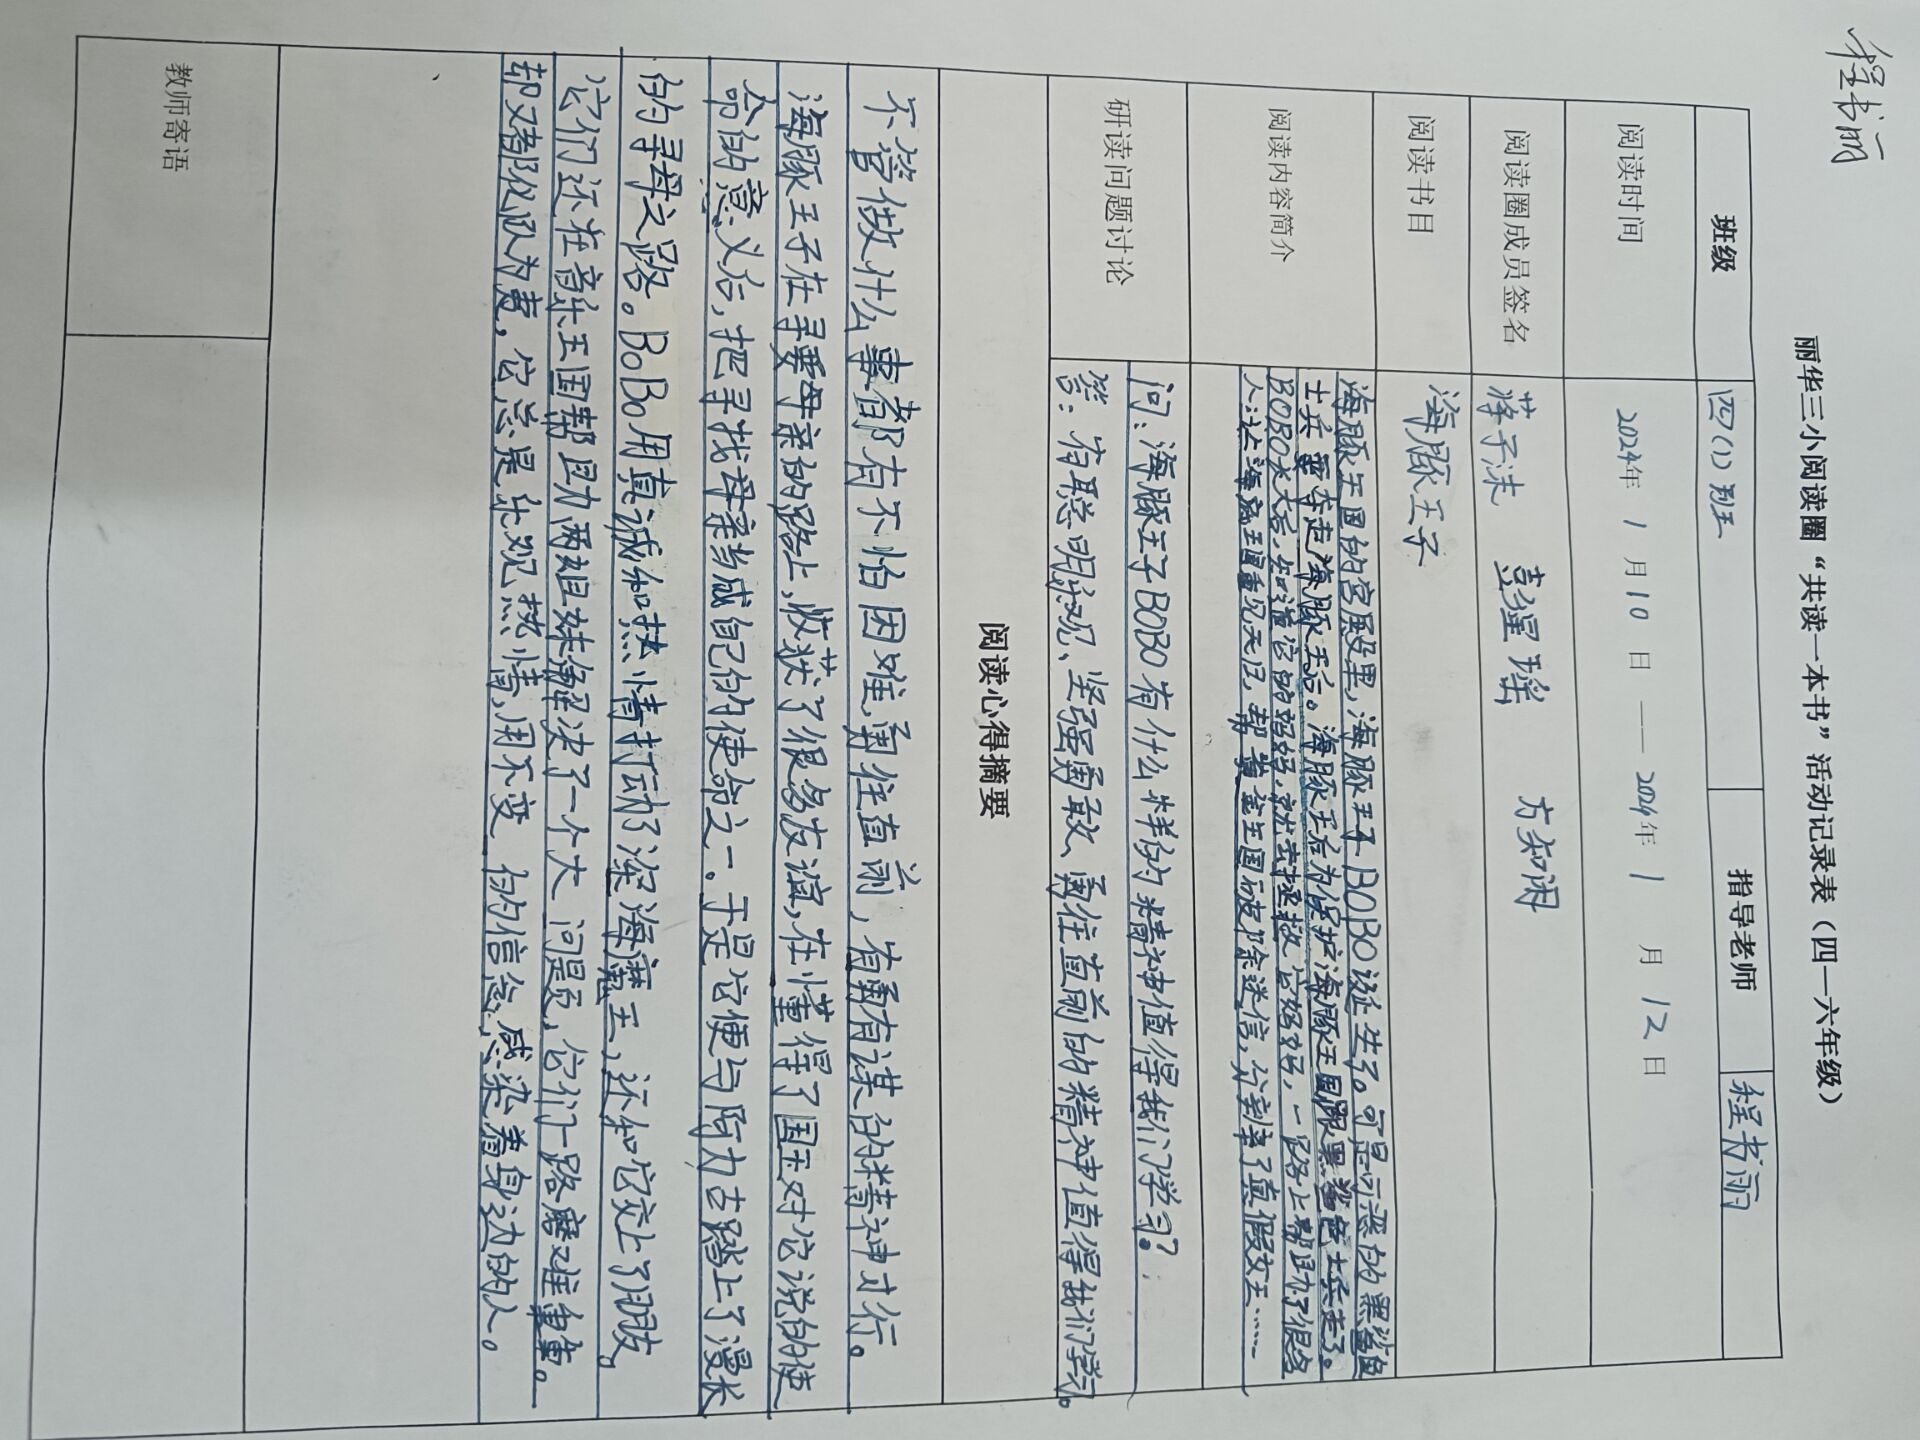 程书丽
丽华三小阅读圈“共读一本书”活动记录表（四—六年级）
班级 四(1)班 指导老师 程书丽
阅读时间 2024年 1 月 10 日 —— 2024年 1 月 12 日
阅读圈成员签名 蒋子沫 彭星瑶 方知闲
阅读书目 海豚王子
阅读内容简介
海豚王国的宫殿里,海豚王子BOBO诞生了。可是可恶的黑鲨鱼
士兵要夺走海豚王后。海豚王后为保护海豚王国跟黑鲨鱼士兵走了。
BOBO长大后,知道它的妈妈,就去拯救它妈妈,一路上帮助了很多
人,让海底王国重见天日,帮黄金王国破除迷信,分割辛了真假女王……
研读问题讨论
问:海豚王子BOBO有什么样的精神值得我们学习?
答:有聪明、乐观、坚强勇敢、勇往直前的精神值得我们学习。
阅读心得摘要
不管做什么事都有不怕困难,勇往直前,有勇有谋的精神才行。
海豚王子在寻要母亲的路上,收获了很多友谊,在懂得了国王对它说的使
命的意义后,把寻找母亲当成自己的使命之一。于是它便与阿力古踏上了漫长
的寻母之路。BoBo用真诚和热情打动了深海魔王,还和它交上了朋友,
它们还在音乐王国帮助两姐妹解决了一个大问是页,它们一路磨难重重。
却又都化队为夷,它总是乐观热情,用不变 的信念,感染着身边的人。
教师寄语